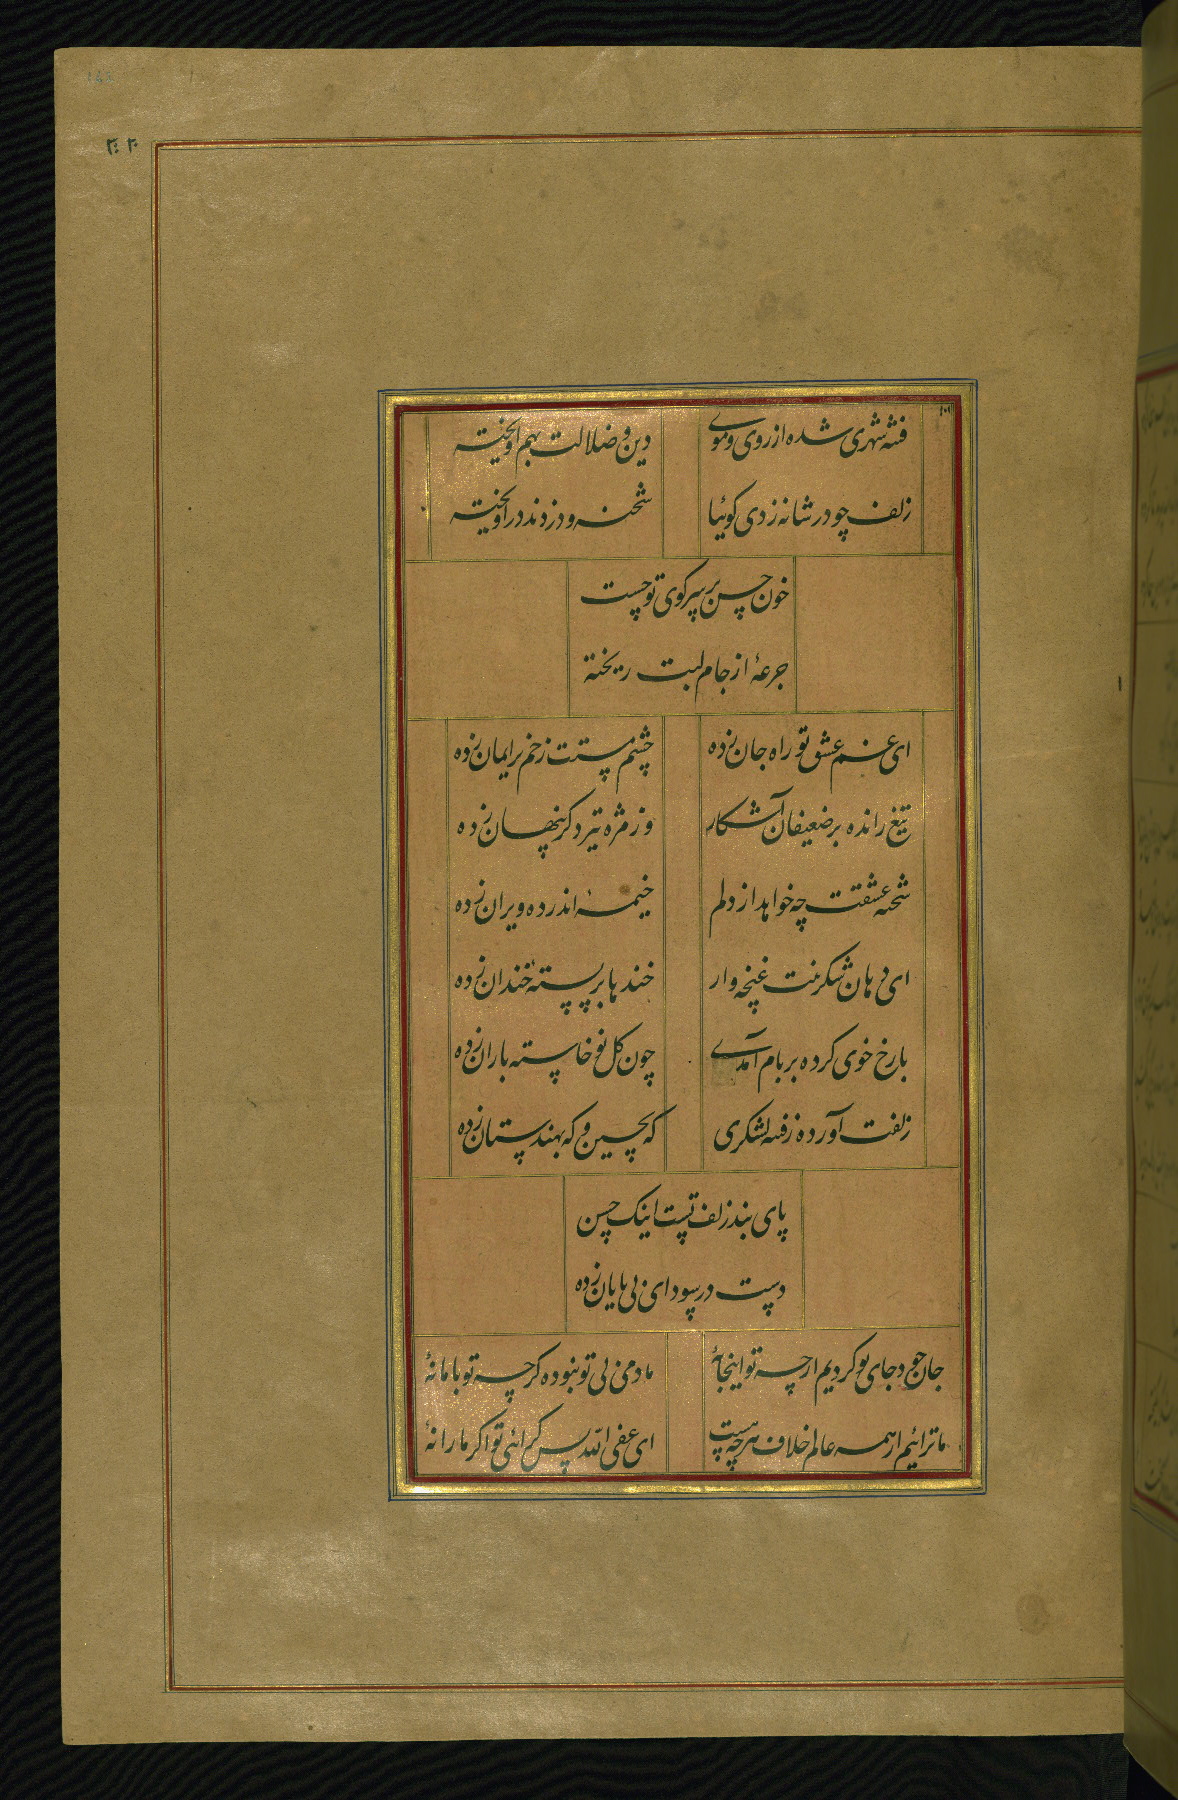 فتنه شهری شده از روی و موی دین و ضلالت بهم آویخته
زلف چو در شانه زدی کوئیا شحنه و دزدند در آویخته
خون حسن بر سر کوی تو چیست
جرعهٔ از جام لبت ریخته
ای غم عشق تو راه جان زده چشم مستت زخم بر ایمان زده
تیغ رانده بر ضعیفان آشکار وز مژه تیر دکر پنهان زده
شحنه عشقت چه خواهد از دلم خیمهٔ اندر ده ویران زده
ای دهان شکرینت غنچه وار خندها بر پستهٔ خندان زده
با رخ خوی کرده بر بام آمدی چون کل نو خاسته باران زده
زلفت آورده ز فتنه لشکری که بچین و که بهندستان زده
پای بند زلف تست اینک حسن
دست در سودای بی پایان زده
جان خود جای تو کردیم ارچه تو اینجا نهٔ ما دمی بی تو نبوده کرچه تو با ما نهٔ
ما ترائیم از همه عالم خلاف هر چه هست ای عفی الله پس کرائی تو اکر ما را نهٔ